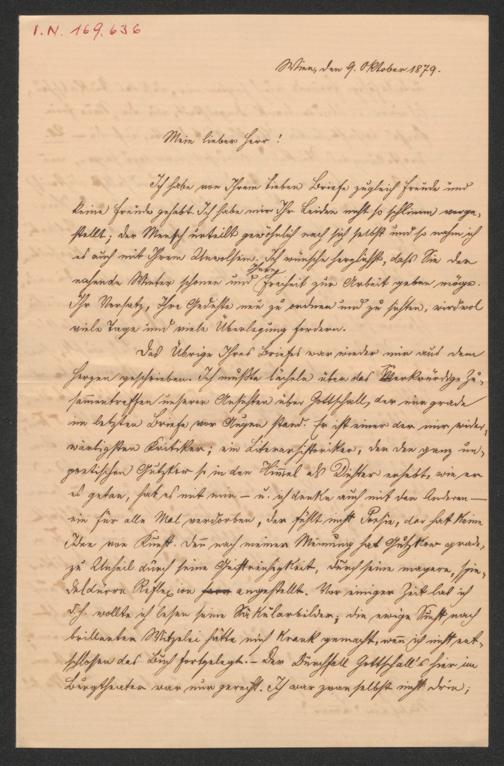 I.N. 169.636
Wien, den 9. Oktober 1879.
Mein lieber Herr!
Ich habe von Ihrem lieben Briefe zugleich Freude und
keine Freude gehabt. Ich habe mir Ihr Leiden nicht so schlimm vorge-
stellt; der Mensch urteilt gewöhnlich nach sich selbst und so nahm ich
es auch mit Ihrem Unwolsein. Ich wünsche herzlichst, dass Sie der
nahende Winter schonen und Freiheit zur Arbeit geben möge.
Ihr Vorsatz, Ihre Gedichte neu zu ordnen und zu sichten, wird wol
viele Tage und viele Überlegung fordern.
Das Übrige Ihres Briefes war wieder mir aus dem
Herzen geschrieben. Ich mußte lächeln über das Merkwürdige Zu-
sammentreffen unserer Ansichten über Gottschall, der mir grade
im letzten Briefe vor Augen stand. Er ist einer der mir wider-
wärtigsten Kritiker; ein Literarhistoriker, der den ganz un-
poetischen Gutzkow so in den Himmel als Dichter erhebt, wie er
es getan, hat es mit mir – u. ich denke auch mit den Anderen –
ein für alle Mal verdorben, der fühlt nicht Poesie, der hat keine
Idee von Kunst. Denn nach meiner Meinung hat Gutzkow grade
zu Unheil durch seine Geistreichigkeit, durch seine magere, spin-
deldürre Reflexion angestellt. Vor einiger Zeit las ich
d.h. wollte ich lesen seine Säkularbilder; die ewige Sucht nach
brillanten Witzelei hätte mich krank gemacht, wenn ich nicht ent-
schlossen das Buch fortgelegt. – Der Durchfall Gottschall's hier im
Burgtheater war nur gerecht. Ich war zwar selbst nicht drin;